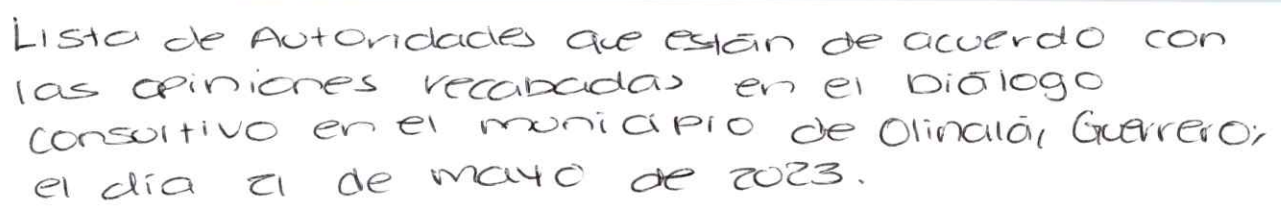 Lista de Autoridades que están de acuerdo con
las opiniones recabadas en el Diálogo
consultivo en el municipio de Olinalá, Guerrero;
el día 21 de mayo de 2023.